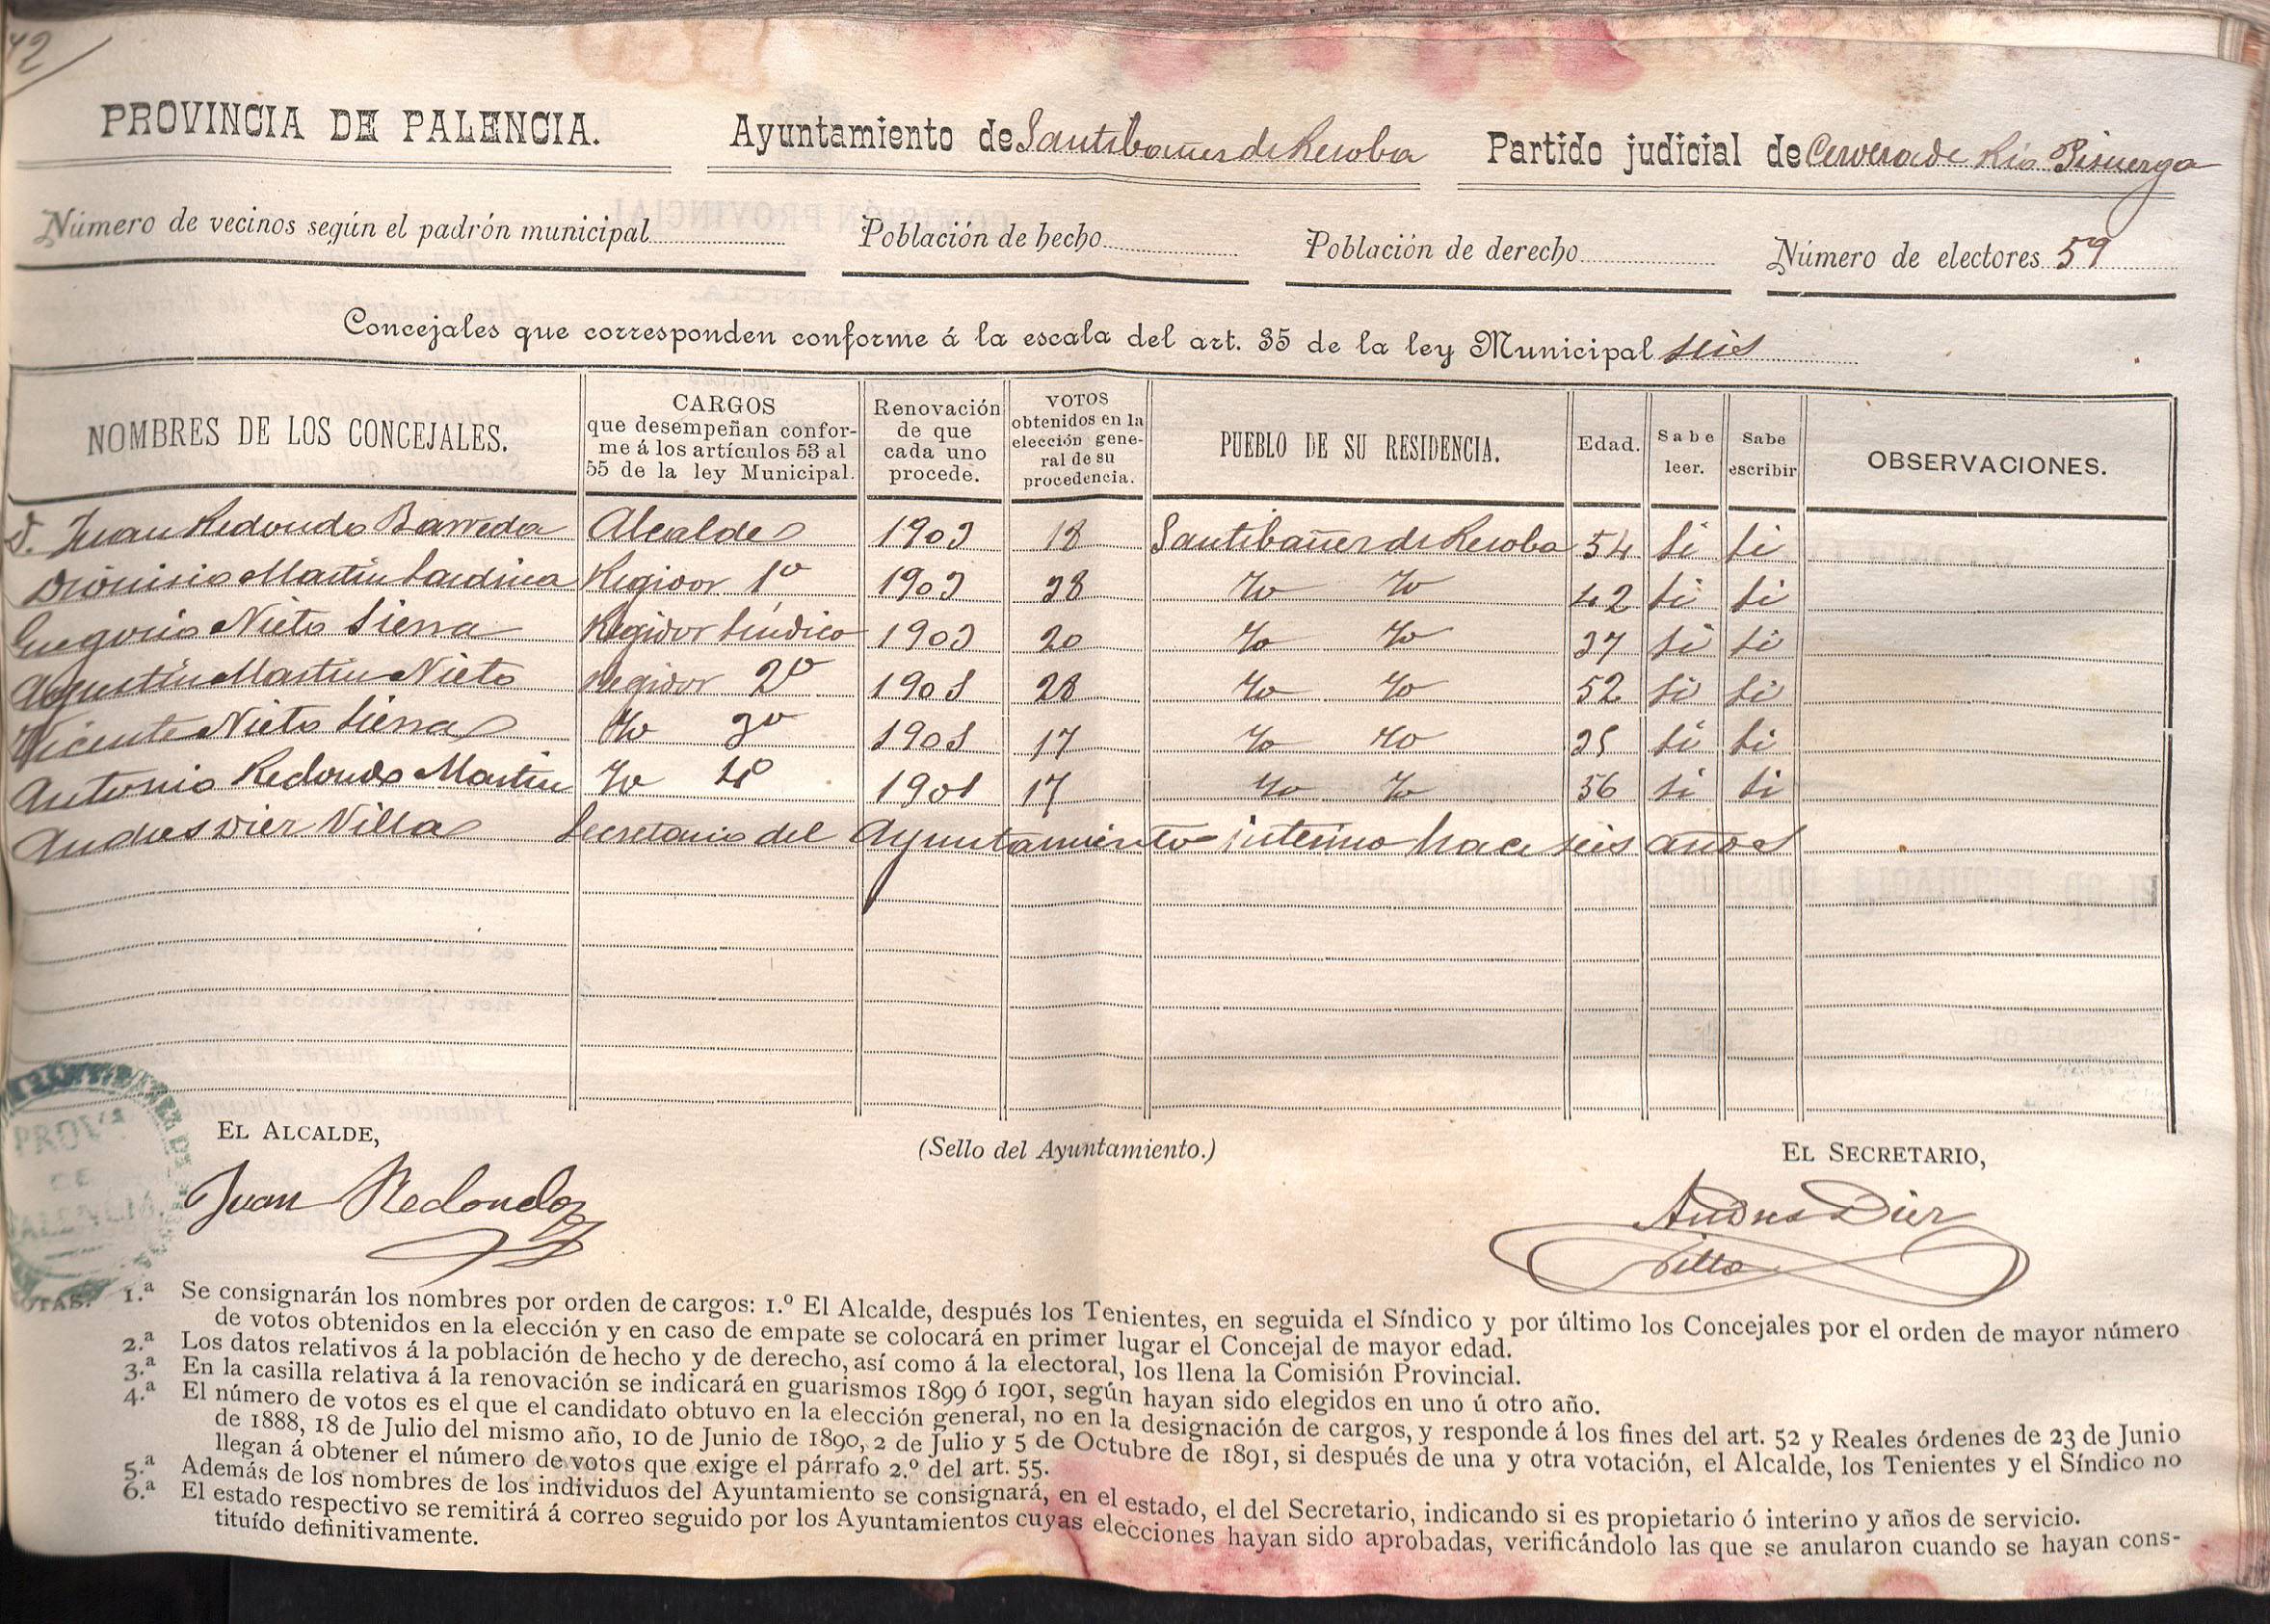 42
PROVINCIA DE PALENCIA. Ayuntamiento de Santibañez de Resoba Partido judicial de Cervera de Rio Pisuerga
Número de vecinos según el padrón municipal Población de hecho Población de derecho Número de electores 59
Concejales que corresponden conforme á la escala del art. 35 de la ley Municipal seis
NOMBRES DE LOS CONCEJALES. CARGOS que desempeñan conforme á los artículos 53 al 55 de la ley Municipal. Renovación de que cada uno procede. VOTOS obtenidos en la elección general de su procedencia. PUEBLO DE SU RESIDENCIA. Edad. Sabe leer. Sabe escribir OBSERVACIONES.
D. Juan Redondo Barreda Alcalde 1903 18 Santibañez de Resoba 54 si si
Dionisio Martin Regidor 1º 1903 28 Yo Yo 42 si si
Gregorio Nieto Sierra Regidor Síndico 1903 20 Yo Yo 37 si si
Agustin Martin Nieto regidor 2º 1901 28 Yo Yo 52 si si
Vicente Nieto Sierra Yo 3º 1901 17 Yo Yo si si
Antonio Redondo Martin Yo 4º 1901 17 Yo Yo 56 si si
Andres Diez Villa Secretario del Ayuntamiento interino hace seis años
PROVª
DE
PALENCIA
EL ALCALDE, (Sello del Ayuntamiento.) EL SECRETARIO,
Juan Redondo Andres Diez
Villa
NOTAS. 1.ª Se consignarán los nombres por orden de cargos: 1.º El Alcalde, después los Tenientes, en seguida el Síndico y por último los Concejales por el orden de mayor número
de votos obtenidos en la elección y en caso de empate se colocará en primer lugar el Concejal de mayor edad.
2.ª Los datos relativos á la población de hecho y de derecho, así como á la electoral, los llena la Comisión Provincial.
3.ª En la casilla relativa á la renovación se indicará en guarismos 1899 ó 1901, según hayan sido elegidos en uno ú otro año.
4.ª El número de votos es el que el candidato obtuvo en la elección general, no en la designación de cargos, y responde á los fines del art. 52 y Reales órdenes de 23 de Junio
de 1888, 18 de Julio del mismo año, 10 de Junio de 1890, 2 de Julio y 5 de Octubre de 1891, si después de una y otra votación, el Alcalde, los Tenientes y el Síndico no
llegan á obtener el número de votos que exige el párrafo 2.º del art. 55.
5.ª Además de los nombres de los individuos del Ayuntamiento se consignará, en el estado, el del Secretario, indicando si es propietario ó interino y años de servicio.
6.ª El estado respectivo se remitirá á correo seguido por los Ayuntamientos cuyas elecciones hayan sido aprobadas, verificándolo las que se anularon cuando se hayan cons-
tituído definitivamente.